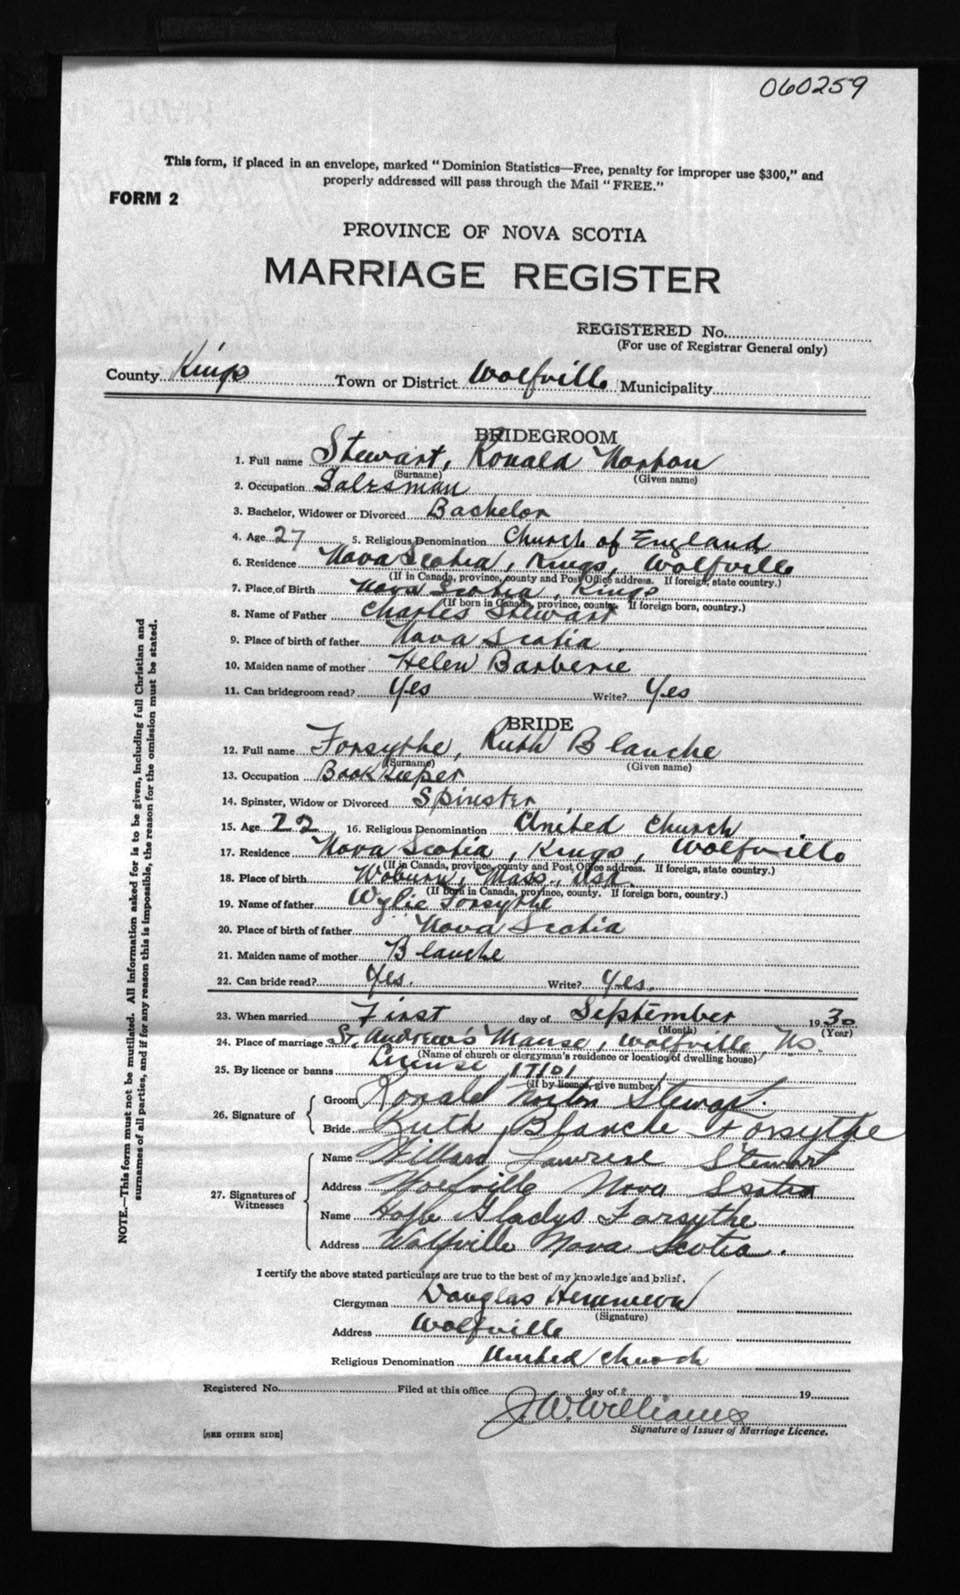 060259
This form, if placed in an envelope, marked "Dominion Statistics—Free, penalty for improper use $300," and
properly addressed will pass through the Mail "FREE."
FORM 2
PROVINCE OF NOVA SCOTIA
MARRIAGE REGISTER
REGISTERED No.
(For use of Registrar General only)
County Kings Town or District Wolfville Municipality
BRIDEGROOM
1. Full name Stewart, Ronald Norton
(Surname) (Given name)
2. Occupation Salesman
3. Bachelor, Widower or Divorced Bachelor
4. Age 27 5. Religious Denomination Church of England
6. Residence Nova Scotia, Kings, Wolfville
(If in Canada, province, county and Post Office address. If foreign, state country.)
7. Place of Birth Nova Scotia, Kings
(If born in Canada, province, county. If foreign born, country.)
8. Name of Father Charles Stewart
9. Place of birth of father Nova Scotia
10. Maiden name of mother Helen Barberie
11. Can bridegroom read? Yes Write? Yes
BRIDE
12. Full name Forsythe, Ruth Blanche
(Surname) (Given name)
13. Occupation Book Keeper
14. Spinster, Widow or Divorced Spinster
15. Age 22 16. Religious Denomination United Church
17. Residence Nova Scotia, Kings, Wolfville
(If in Canada, province, county and Post Office address. If foreign, state country.)
18. Place of birth Woburn, Mass., USA.
(If born in Canada, province, county. If foreign born, country.)
19. Name of father Wylie Forsythe
20. Place of birth of father Nova Scotia
21. Maiden name of mother Blanche
22. Can bride read? Yes. Write? Yes.
23. When married First day of September 1930
(Month) (Year)
24. Place of marriage St. Andrew's Manse, Wolfville, NS.
(Name of church or clergyman's residence or location of dwelling house)
25. By licence or banns License 17101
(If by licence, give number)
26. Signature of
Groom Ronald Norton Stewart.
Bride Ruth Blanche Forsythe
27. Signatures of Witnesses
Name Willard Stewart
Address Wolfville Nova Scotia
Name Hope Gladys Forsythe
Address Wolfville Nova Scotia.
I certify the above stated particulars are true to the best of my knowledge and belief.
Clergyman Douglas Hemmeon
(Signature)
Address Wolfville
Religious Denomination United Church
Registered No. Filed at this office day of 19
J.W. Williams
[SEE OTHER SIDE] Signature of Issuer of Marriage Licence.
NOTE.—This form must not be mutilated. All information asked for is to be given, including full Christian and
surnames of all parties, and if for any reason this is impossible, the reason for the omission must be stated.